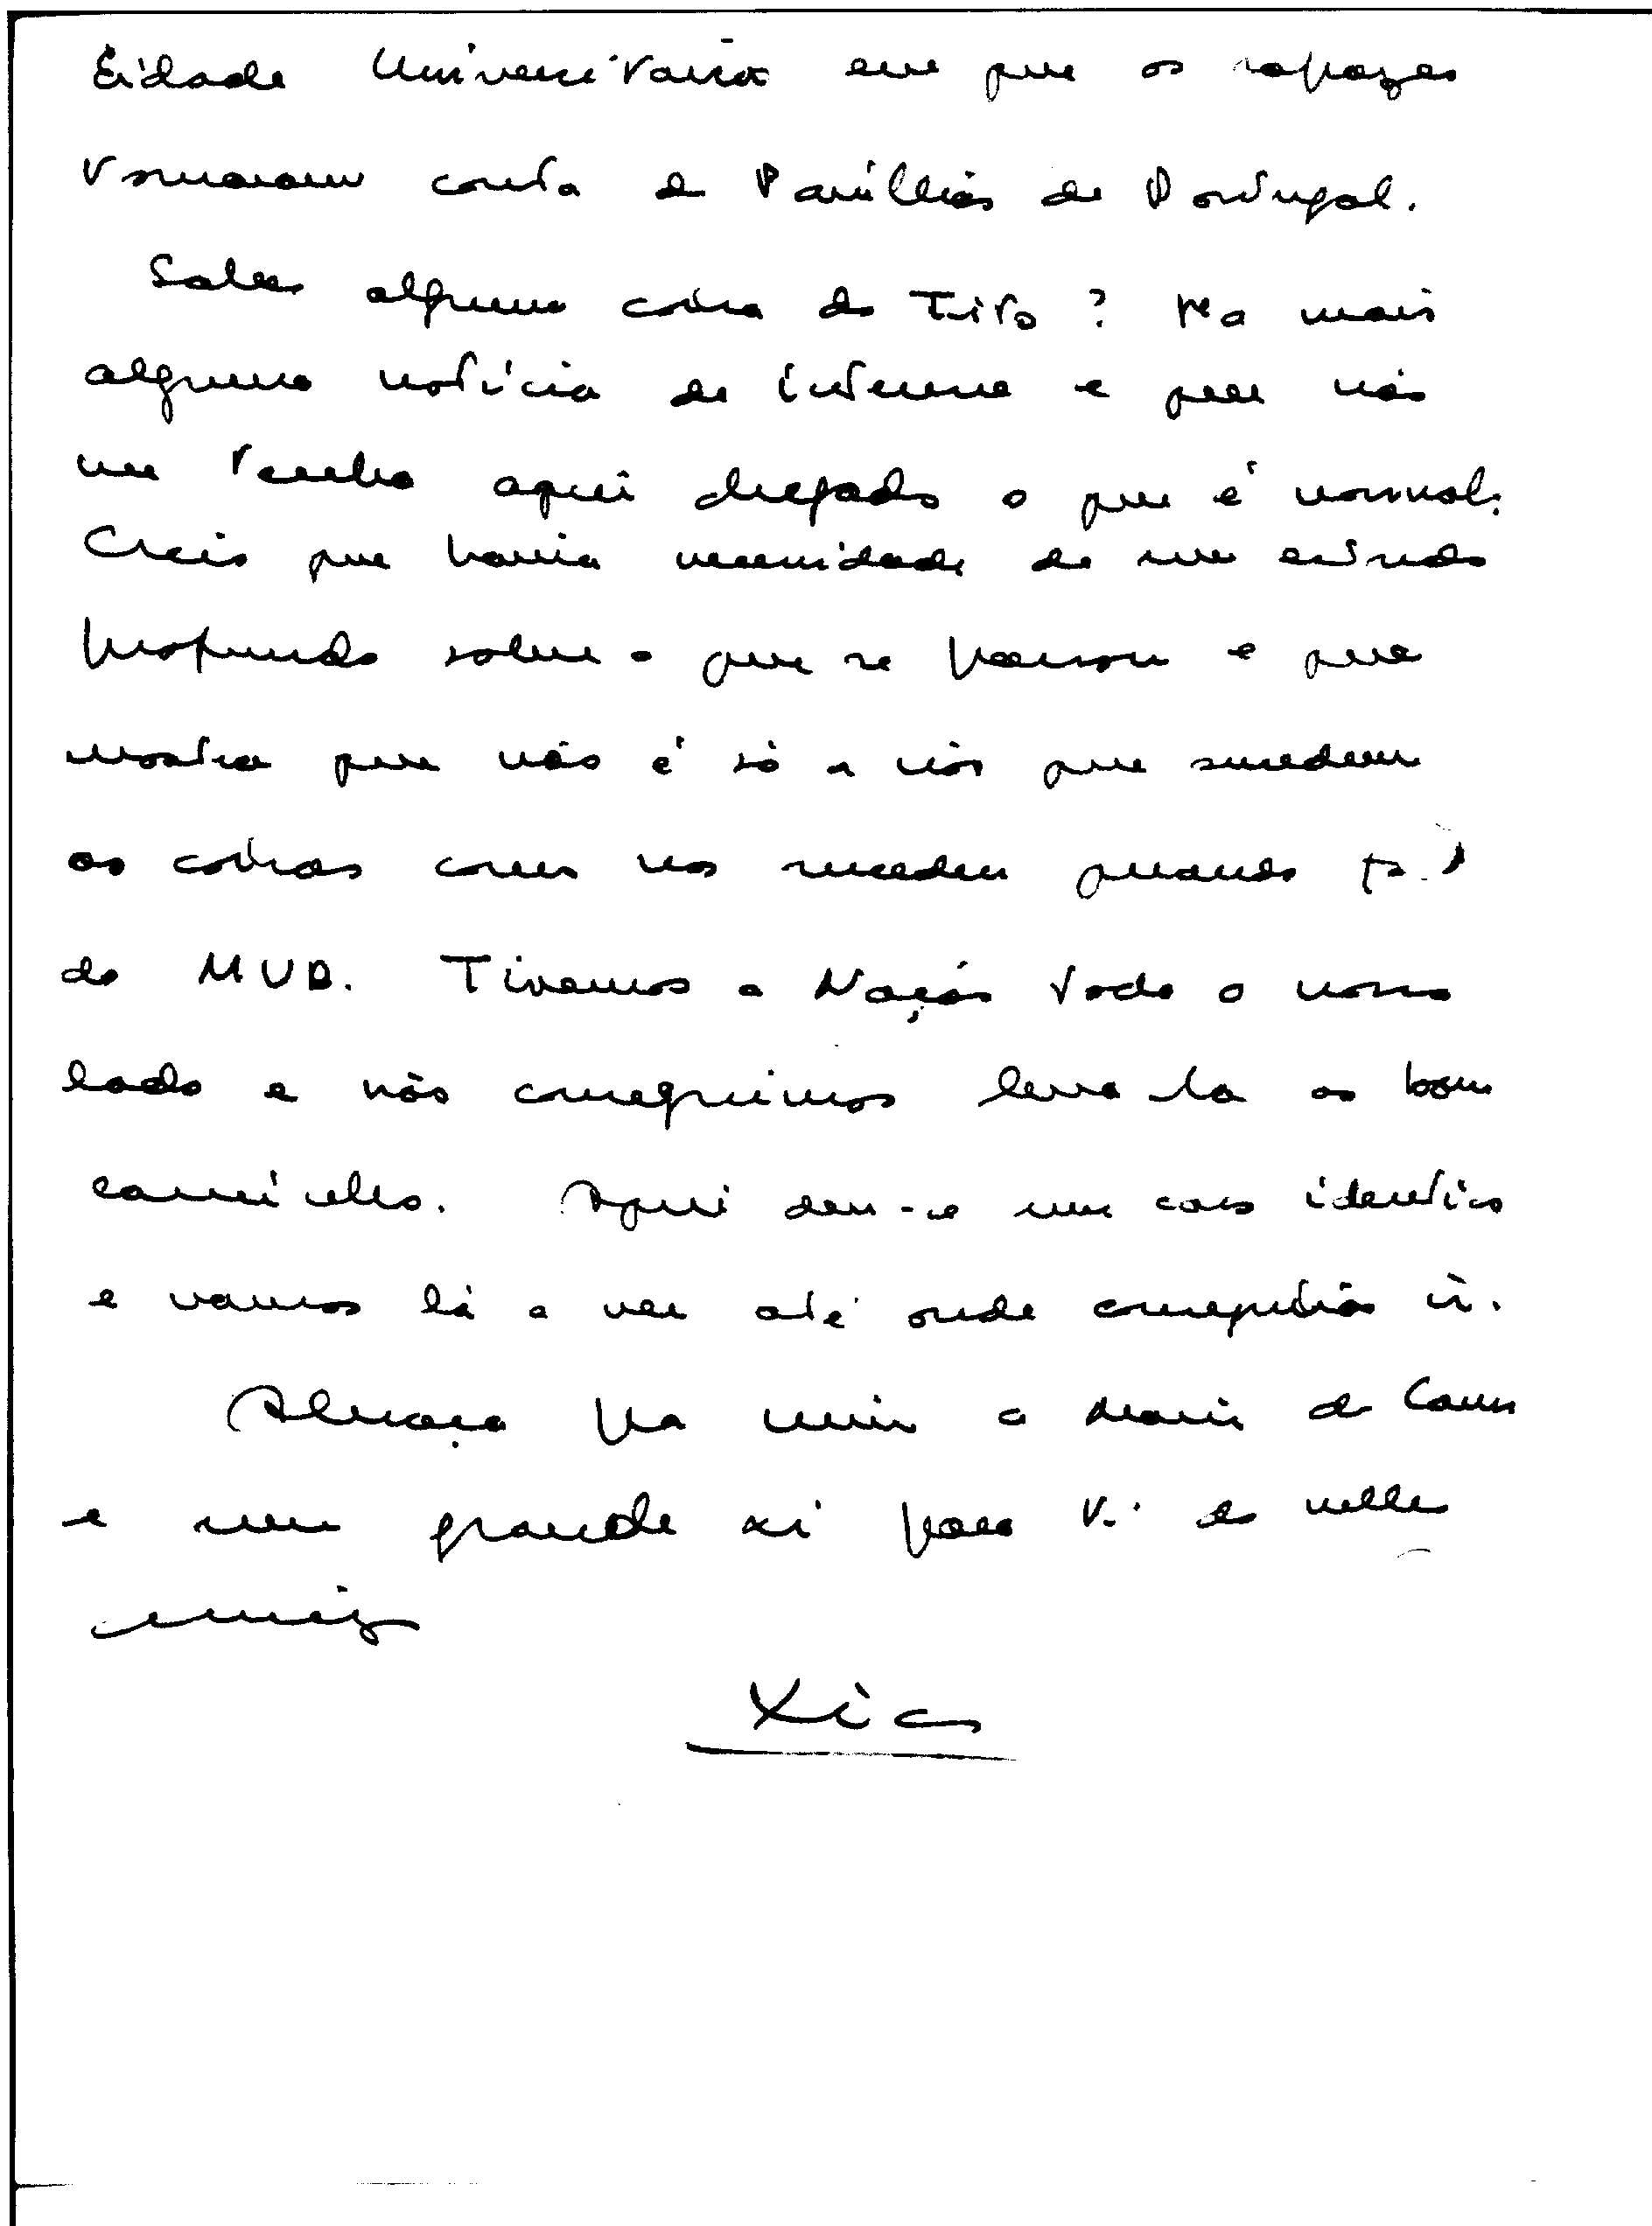 Cidade Universitaria em que os rapazes
tomaram conta do Pavilhão de Portugal.
Sabes alguma coisa do Tito? Ha mais
alguma noticia de interesse e que não
me tenha aqui chegado o que é normal.
Creio que havia necessidade de um estudo
profundo sobre o que se passou e que
mostra que não é só a nós que sucedem
as coisas como nos sucedeu quando
do MUD. Tivemos a Nação toda o nosso
lado e não conseguimos leva-la ao bom
caminho. Aqui deu-se um caso identico
e vamos lá a ver até onde conseguirão ir.
Abraça por mim a Maria do Carmo
e um grande xi para V. do velho
amigo
Xico